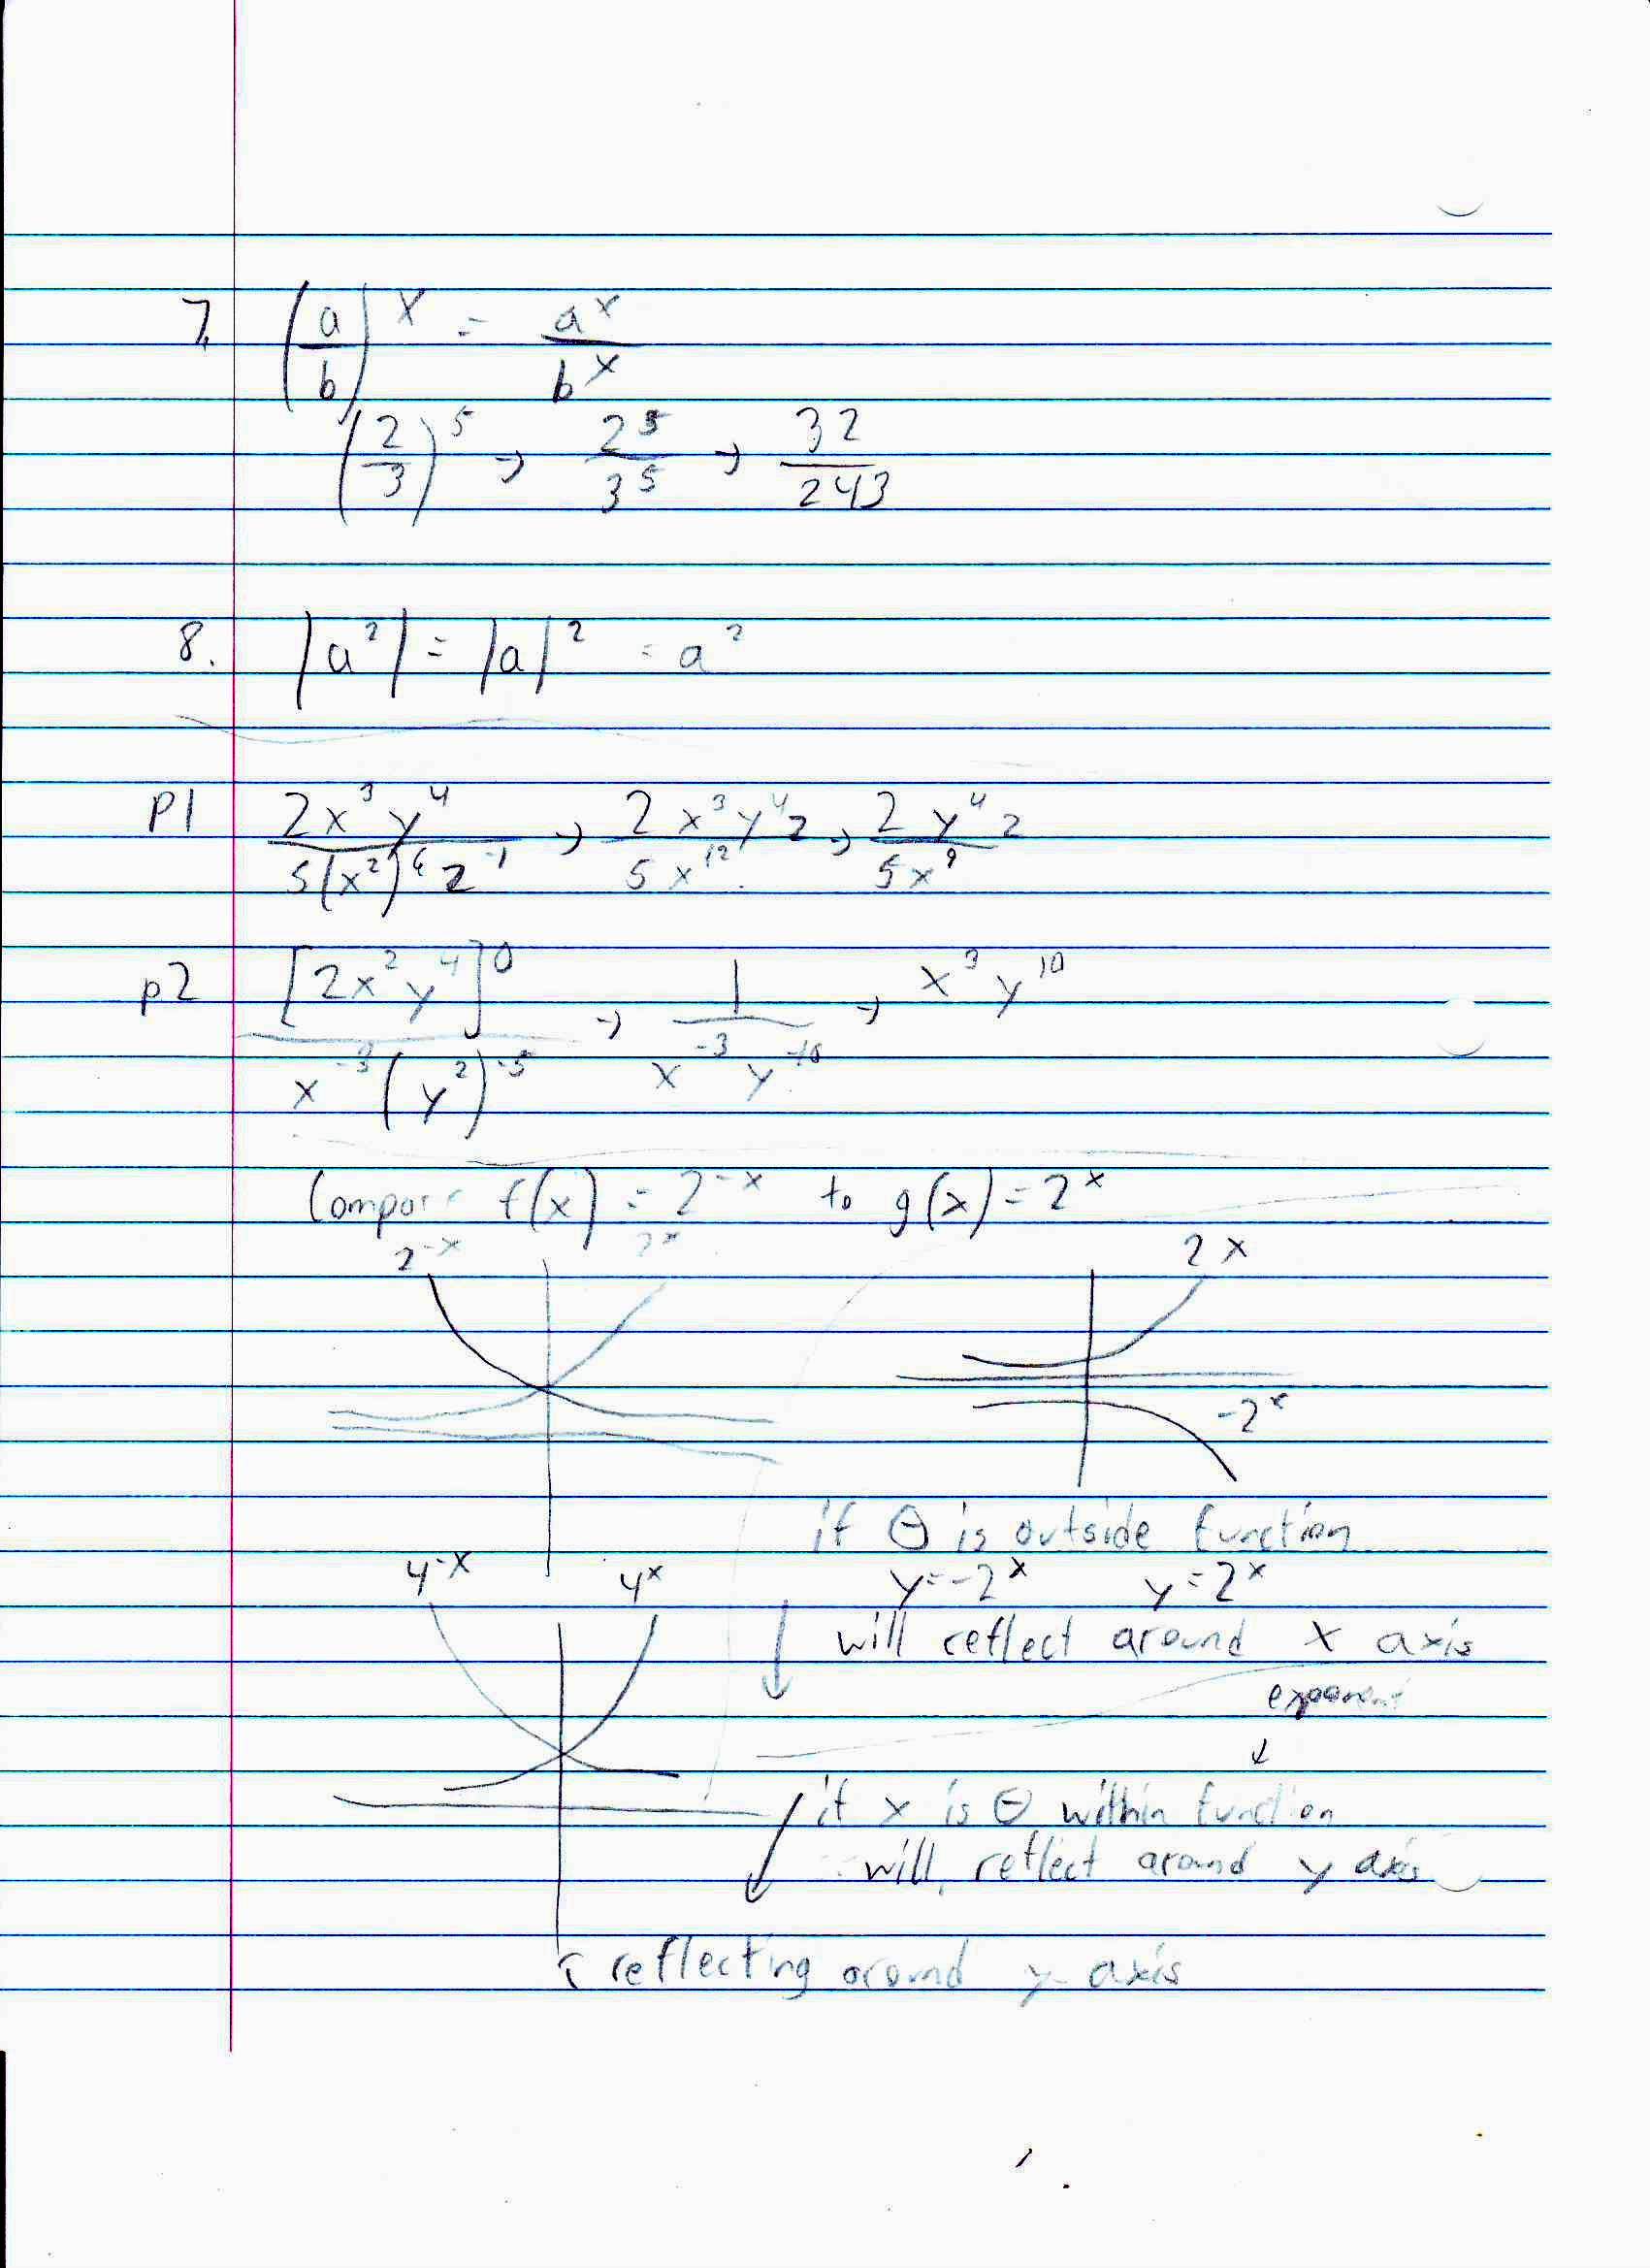 7. (a/b)^x = a^x/b^x
(2/3)^5 → 2^5/3^5 → 32/243
8. |a^2| = |a|^2 = a^2
P1 2x^3y^4/5(x^2)^6z^-1 → 2x^3y^4z/5x^12 → 2y^4z/5x^9
p2 [2x^2y^4]^0/x^-3(y^2)^-5 → 1/x^-3y^-10 → x^3y^10
Compare f(x) = 2^-x to g(x) = 2^x
2^-x 2^x 2^x
-2^x
if ⊖ is outside function
4^-x 4^x y=-2^x y=2^x
↓ will reflect around x axis
exponent
↓
if x is ⊖ within function
will reflect around y axis
↑ reflecting around y-axis